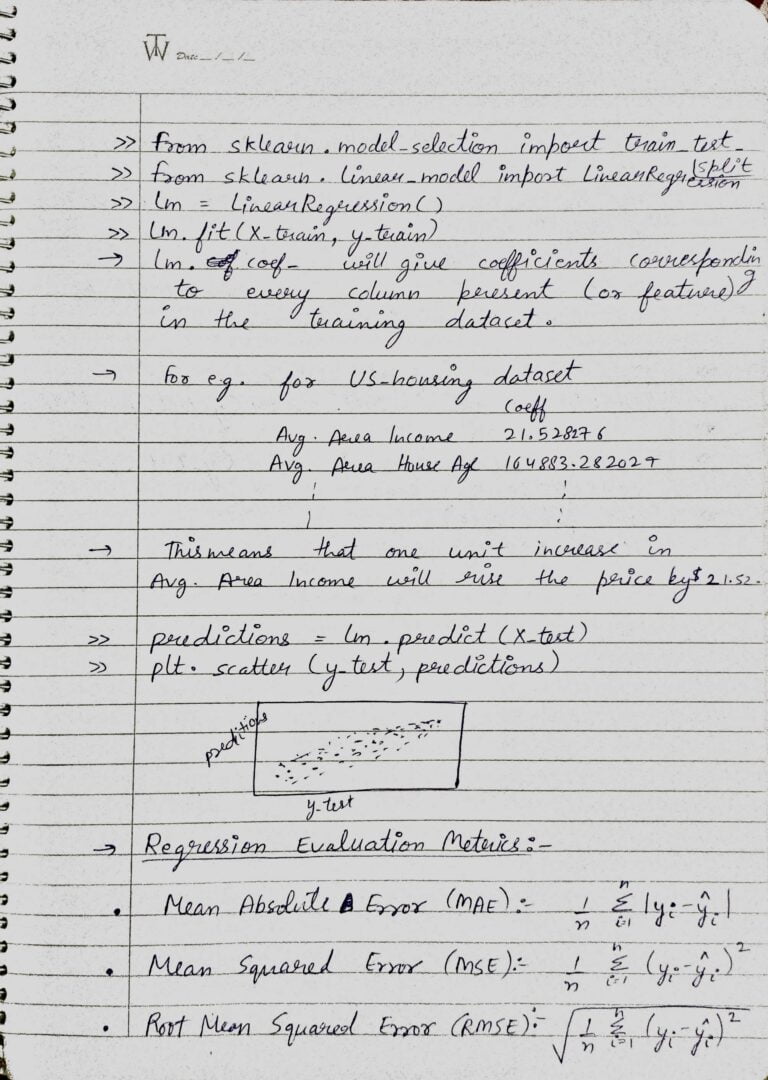 TW Date __/__/__
>> from sklearn . model_selection import train_test_
split
>> from sklearn . linear_model import LinearRegression
>> lm = LinearRegression()
>> lm. fit (X_train, y_train)
→ lm. coef_ will give coefficients corresponding
to every column present (or feature)
in the training dataset .
→ For e.g. for US-housing dataset
Coeff
Avg. Area Income 21.528276
Avg. Area House Age 164883.282027
→ This means that one unit increase in
Avg. Area Income will rise the price by $ 21.52.
>> predictions = lm . predict (X_test)
>> plt. scatter (y_test, predictions)
preditions
y_test
→ Regression Evaluation Metrics:-
• Mean Absolute Error (MAE) :- 1/n Σ_{i=1}^{n} |yi - ŷi|
• Mean Squared Error (MSE):- 1/n Σ_{i=1}^{n} (yi - ŷi)²
• Root Mean Squared Error (RMSE):- √(1/n Σ_{i=1}^{n} (yi - ŷi)²)